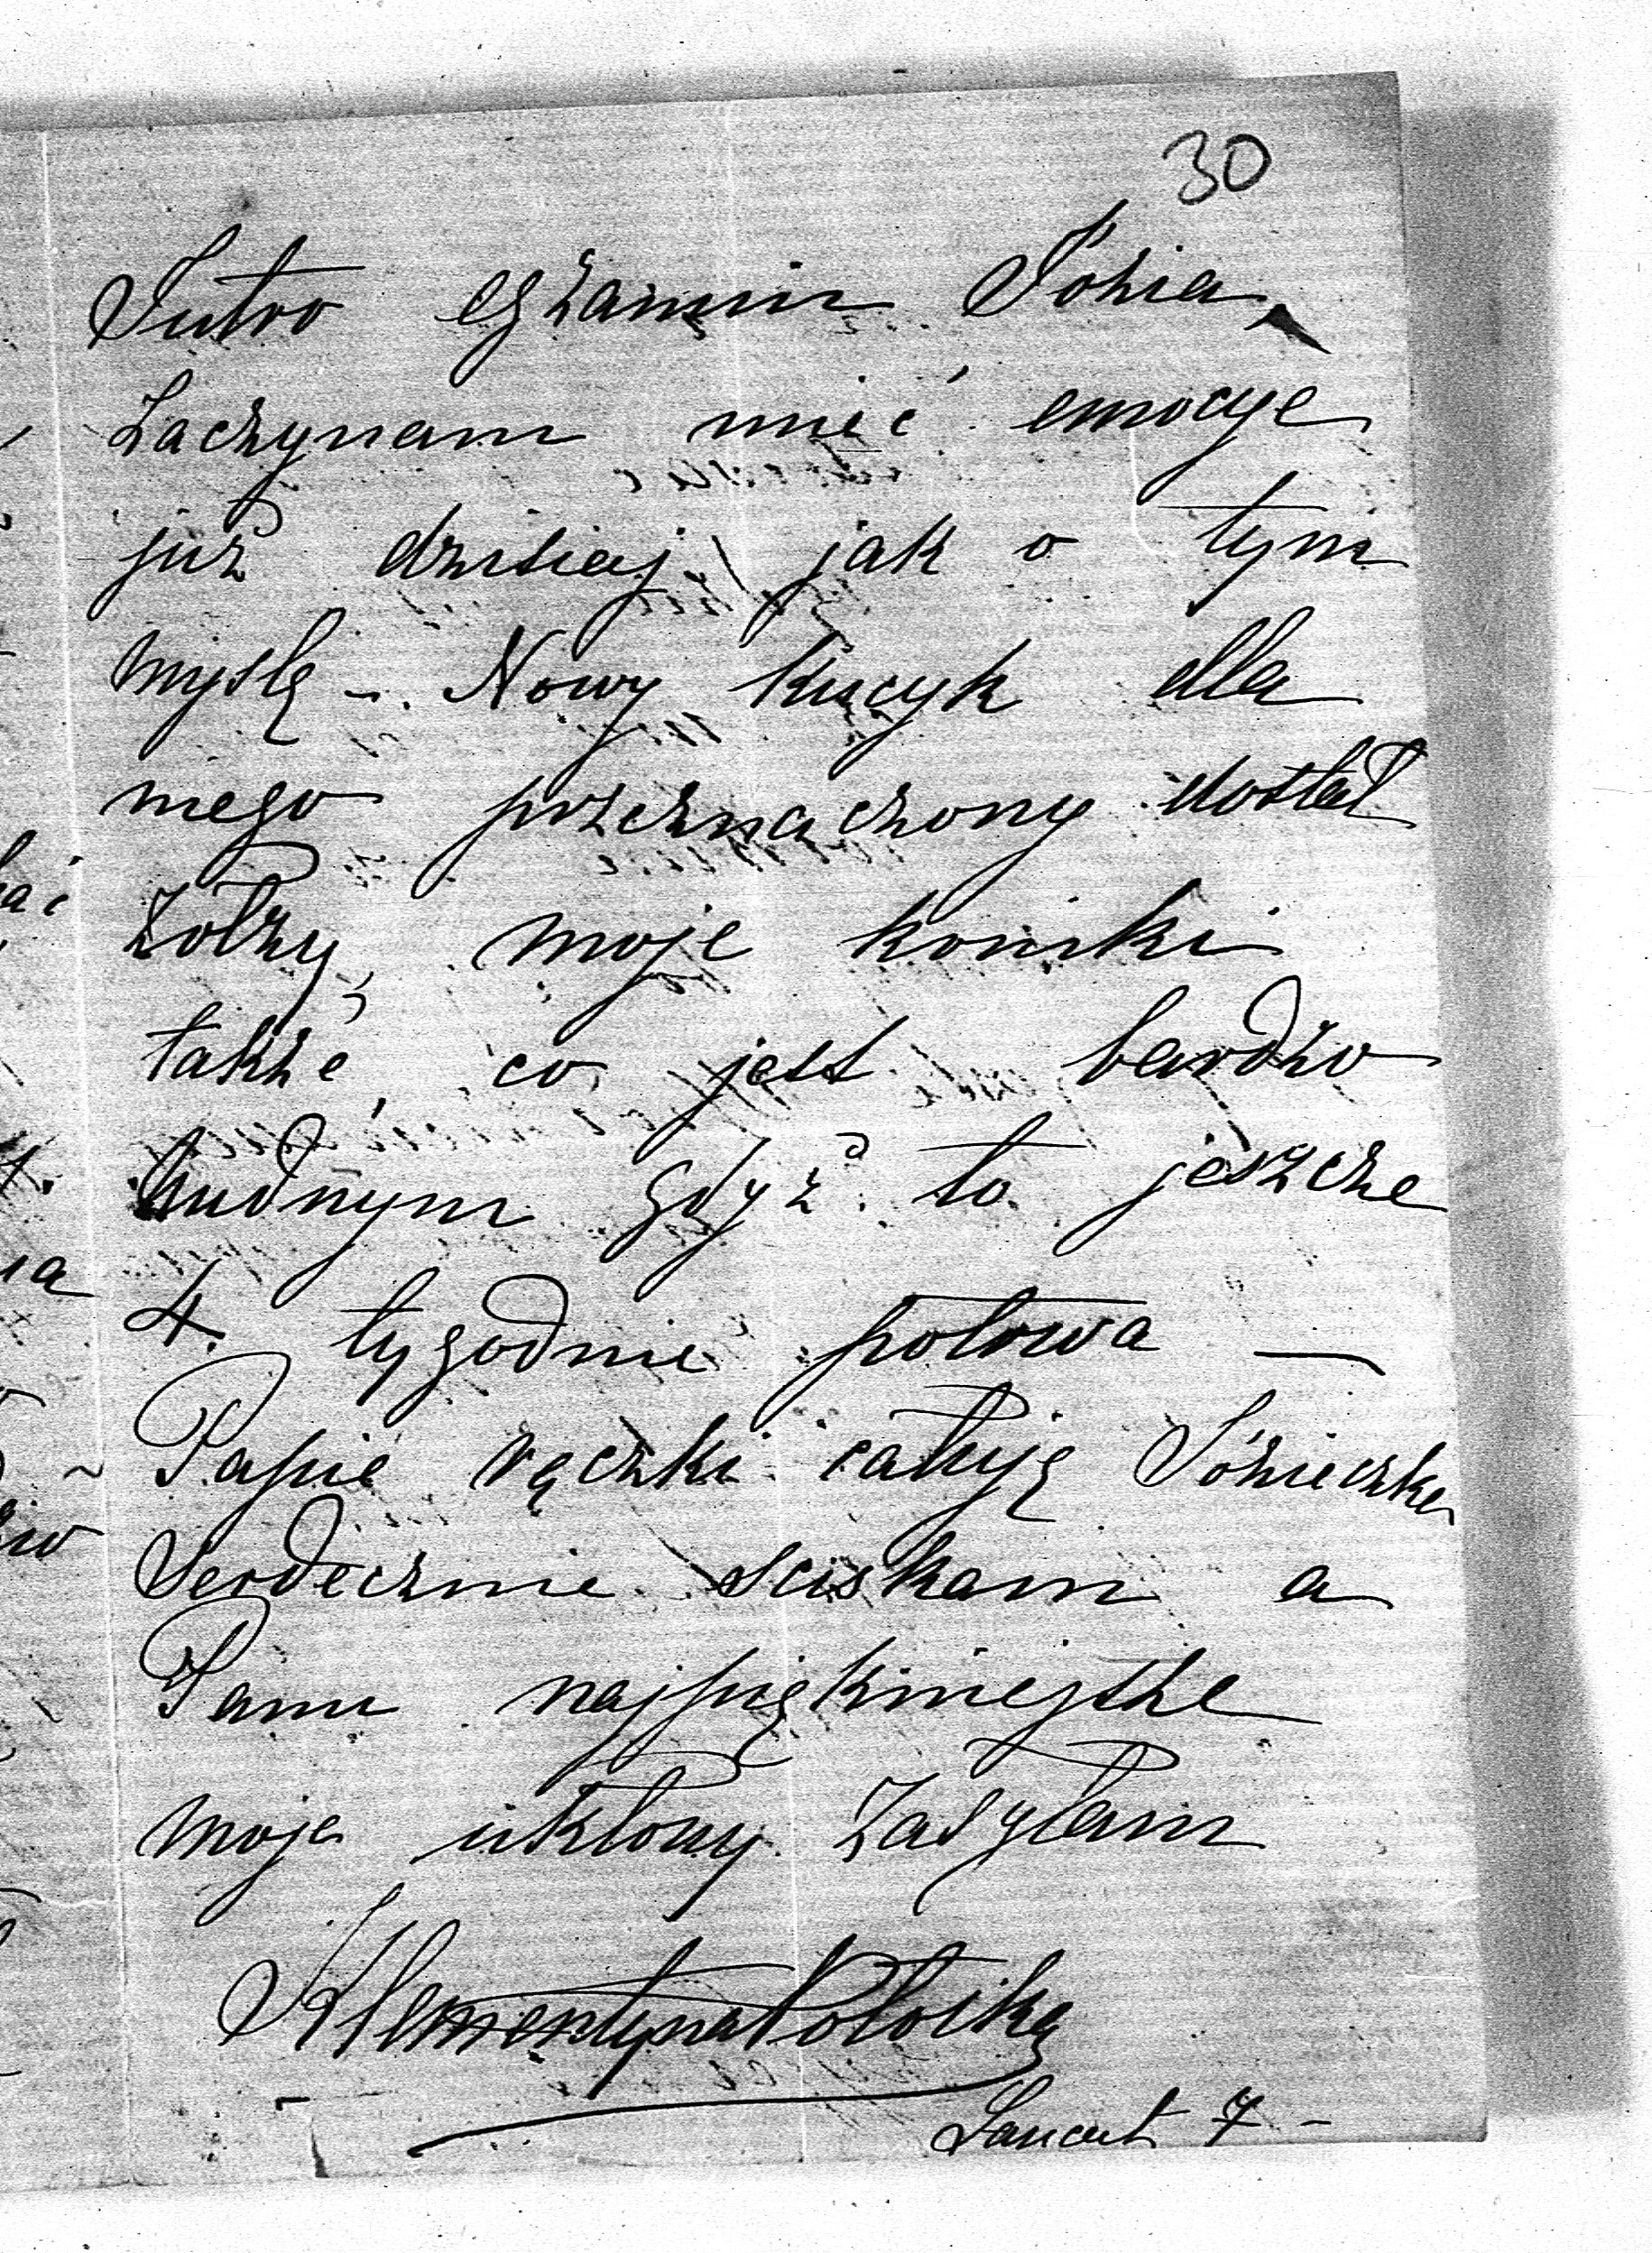 30
Jutro egzamin Józia,
Zaczynam mieć emocye
już dzisiaj jak o tym
myslę -. Nowy kucyk dla
niego przeznaczony dostał
Zołzy, moje koniki
także, co jest bardzo
nudnym gdyż to jeszcze
4 tygodnie potowa —
Papie rączki całuję Józieczka
Serdecznie sciskam a
Panu najpiękniejsze
moje ukłony Zasyłam
Klementyna Potocka
Lancut 7 -